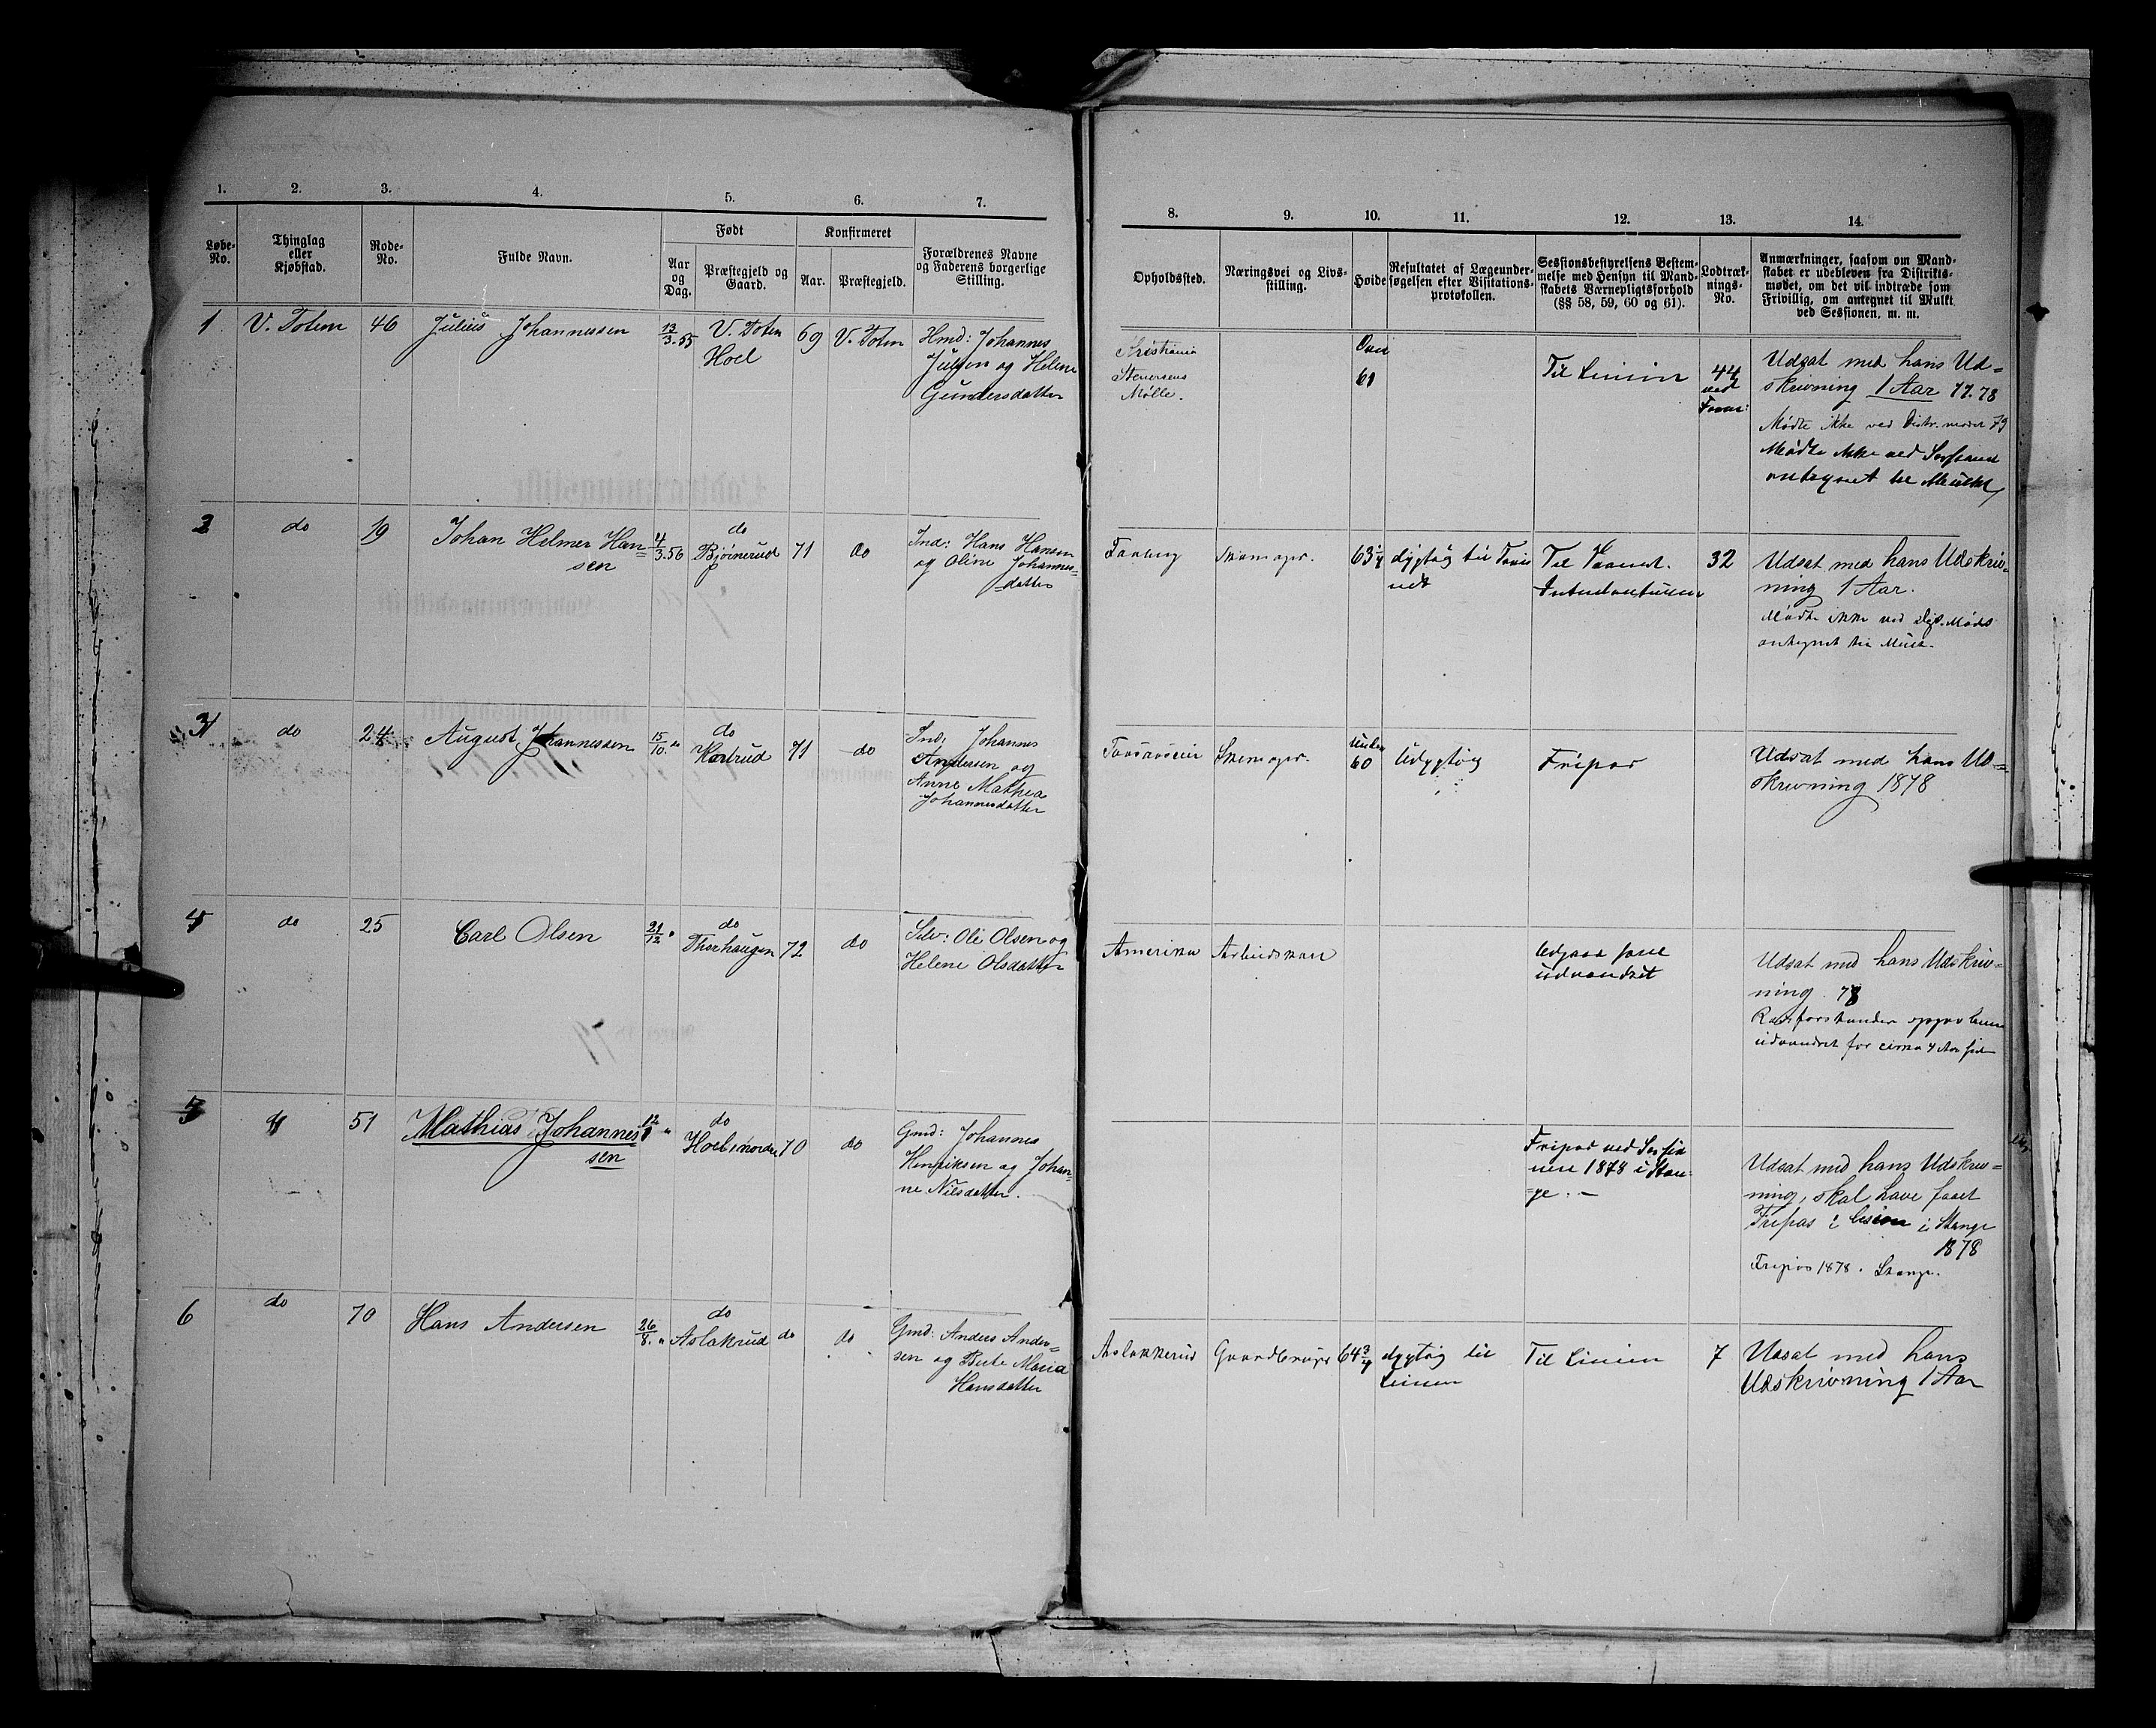 1. 2. 3. 4. 5. 6. 7.
Løbe-No. Thinglag eller Kjøbstad. Rode-No. Fulde Navn. Født Aar og Dag. Præstegjeld og Gaard. Konfirmeret Aar. Præstegjeld. Forældrenes Navne og Faderens borgerlige Stilling.
8. 9. 10. 11. 12. 13. 14.
Opholdssted. Næringsvei og Livsstilling. Høide Resultatet af Lægeundersøgelsen efter Visitationsprotokollen. Sessionsbestyrelsens Bestemmelse med Hensyn til Mandskabets Værnepligtsforhold (§§ 58, 59, 60 og 61). Lodtræknings-No. Anmærkninger, saasom om Mandskabet er udebleven fra Distriktsmødet, om det vil indtræde som Frivillig, om antegnet til Mulkt ved Sessionen. m. m.
1 V. Toten 46 Julius Johannessen 13/3 55 V. Toten 69 V. Toten Hmd: Johannes
Hoel Julsen og Helene
Gundersdatter
Kristiania Over Til Linien 44 Udsat med hans Ud=
Stenersens 61 ved skrivning 1 Aar 77.78
Mølle. Mødte ikke ved Distr. mødet 79
Mødte ikke ved
antegnet til Mulkt
2 do 19 Johan Helmer Han= 4/3.56 do 71 do Ind: Hans Hansen
sen Bjørnerud og Oline Johannes=
datter
Faaberg 63 1/4 dygtig til Til 32 Udsat med hans Udskriv=
ning 1 Aar.
Mødte ikke ved Møde
antegnet til Mulk.
3 do 24 August Johannessen 15/10 " do 71 do Ind: Johannes
Andersen og
Anne Mathea
Johannesdatter
Under Udygtig Fripas Udsat med hans Ud=
60 skrivning 1878
4 do 25 Carl Olsen 21/12 " do 72 do Selv: Ole Olsen og
Thorhaugen Helene Olsdatter
Amerika Arbeidsmand Udsat med hans Udskriv=
udvandret ning 78
Rodeforstander
udvandret for cirka 4 Aar siden
5 51 Mathias Johannes= 12/1 " do 70 do Gmd: Johannes
sen Hoel nordre Henriksen og Johan=
ne Nilsdatter.
Fripas ved Sessio Udsat med hans Udskriv=
nen 1878 i Stan= ning, skal have faaet
ge. – Fripas i Stange
1878
Fripas 1878. Stange.
6 do 70 Hans Andersen 26/8. " do do do Gmd: Anders Ander=
Aslakrud sen og Maria
Hansdatter
Aslakkerud Gaardbruger 64 3/4 dygtig til Til Linien 7 Udsat med hans
Linien Udskrivning 1 Aar